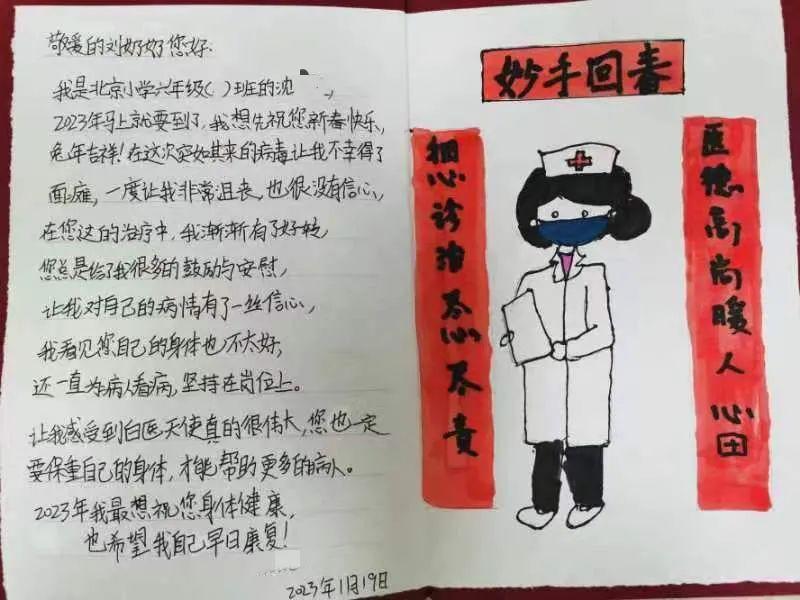 敬爱的刘奶奶您好:
我是北京小学六年级( )班的沈 ,
2023年马上就要到了,我想先祝您新春快乐,
兔年吉祥!在这次突如其来的病毒让我不幸得了
面瘫,一度让我非常沮丧,也很没有信心,
在您这的治疗中,我渐渐有了好转
您总是给了我很多的鼓励与安慰,
让我对自己的病情有了一丝信心,
我看见您自己的身体也不太好,
还一直为病人看病,坚持在岗位上。
让我感受到白医天使真的很伟大,您也一定
要保重自己的身体,才能帮助更多的病人。
2023年我最想祝您身体健康,
也希望我自己早日康复!
2023年1月19日
妙手回春
医德高尚暖人心田
细心诊治尽心尽责